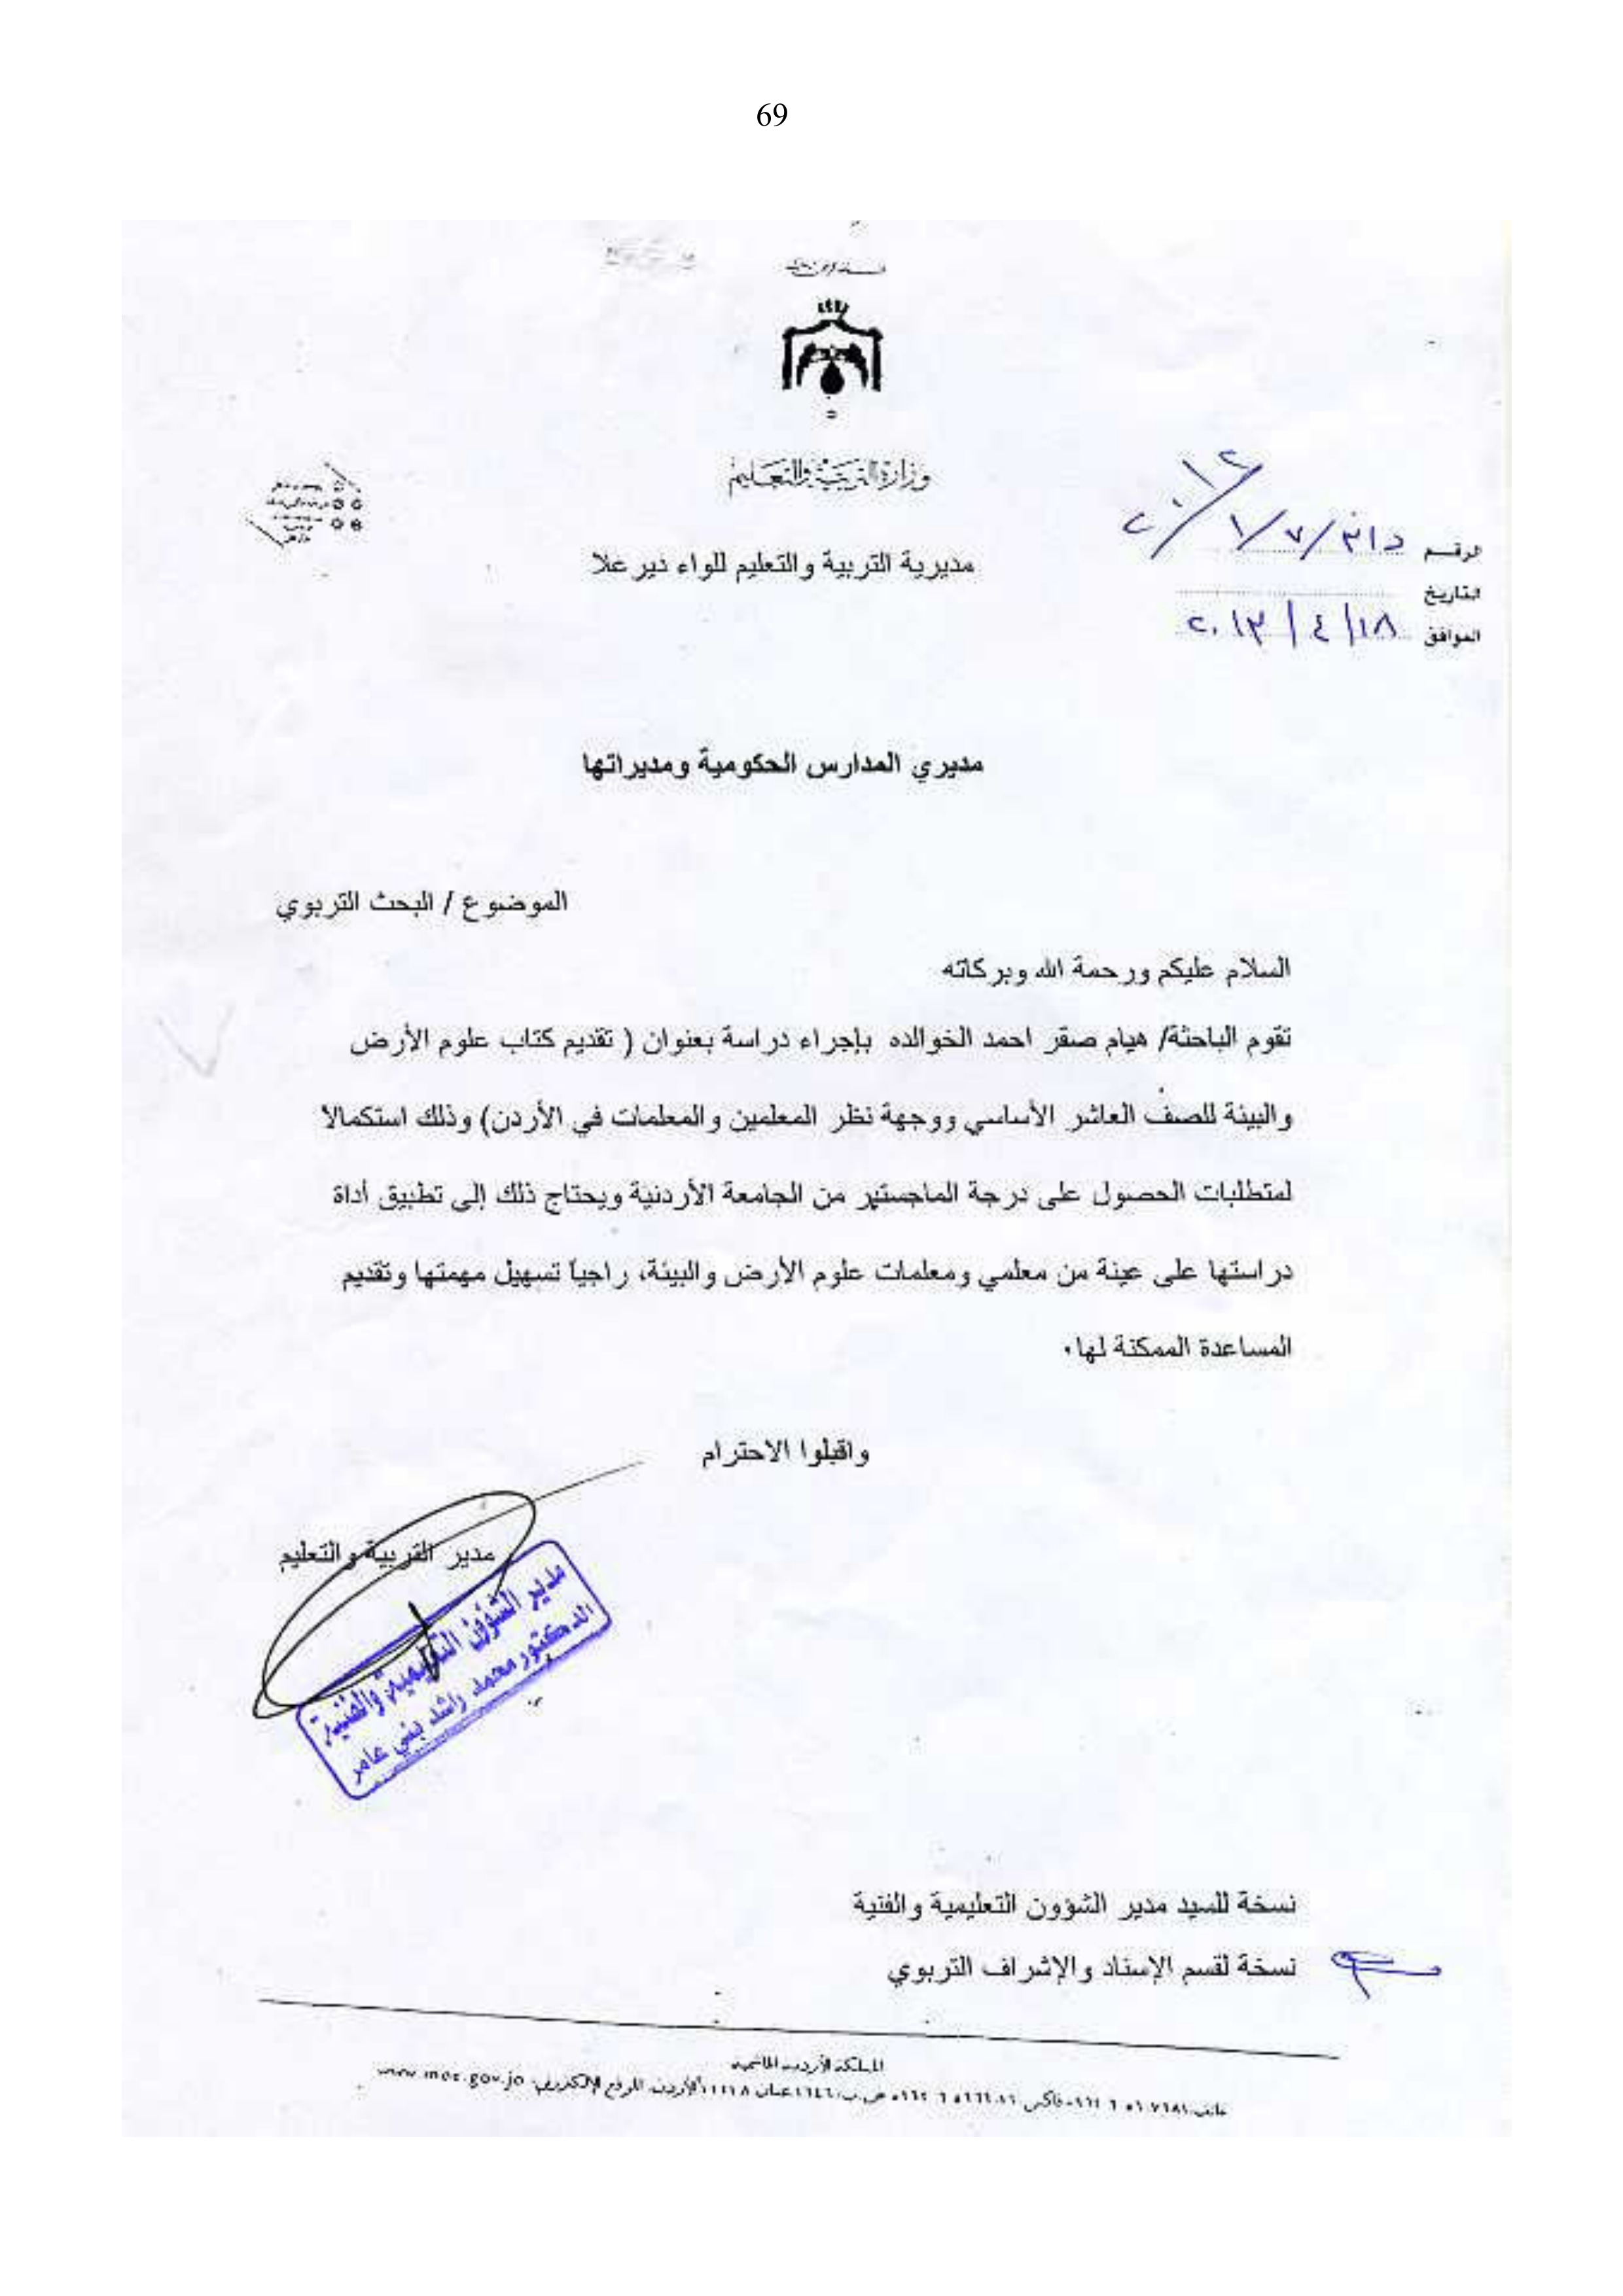 69
وزارة التربية والتعليم
مديرية التربية والتعليم للواء ديرعلا
الرقم
التاريخ
الموافق ١٨/٤/٢٠١٣
مديري المدارس الحكومية ومديراتها
الموضوع / البحث التربوي
السلام عليكم ورحمة الله وبركاته
تقوم الباحثة/ هيام صقر احمد الخوالده بإجراء دراسة بعنوان ( تقديم كتاب علوم الأرض
والبيئة للصف العاشر الأساسي ووجهة نظر المعلمين والمعلمات في الأردن) وذلك استكمالا
لمتطلبات الحصول على درجة الماجستير من الجامعة الأردنية ويحتاج ذلك إلى تطبيق أداة
دراستها على عينة من معلمي ومعلمات علوم الأرض والبيئة، راجياً تسهيل مهمتها وتقديم
المساعدة الممكنة لها.
واقبلوا الاحترام
مدير التربية والتعليم
مدير الشؤون التعليمية والفنية
الدكتور محمد راشد بني عامر
نسخة للسيد مدير الشؤون التعليمية والفنية
نسخة لقسم الإسناد والإشراف التربوي
المملكة الأردنية الهاشمية
الأردن الموقع الإلكتروني: www.moe.gov.jo